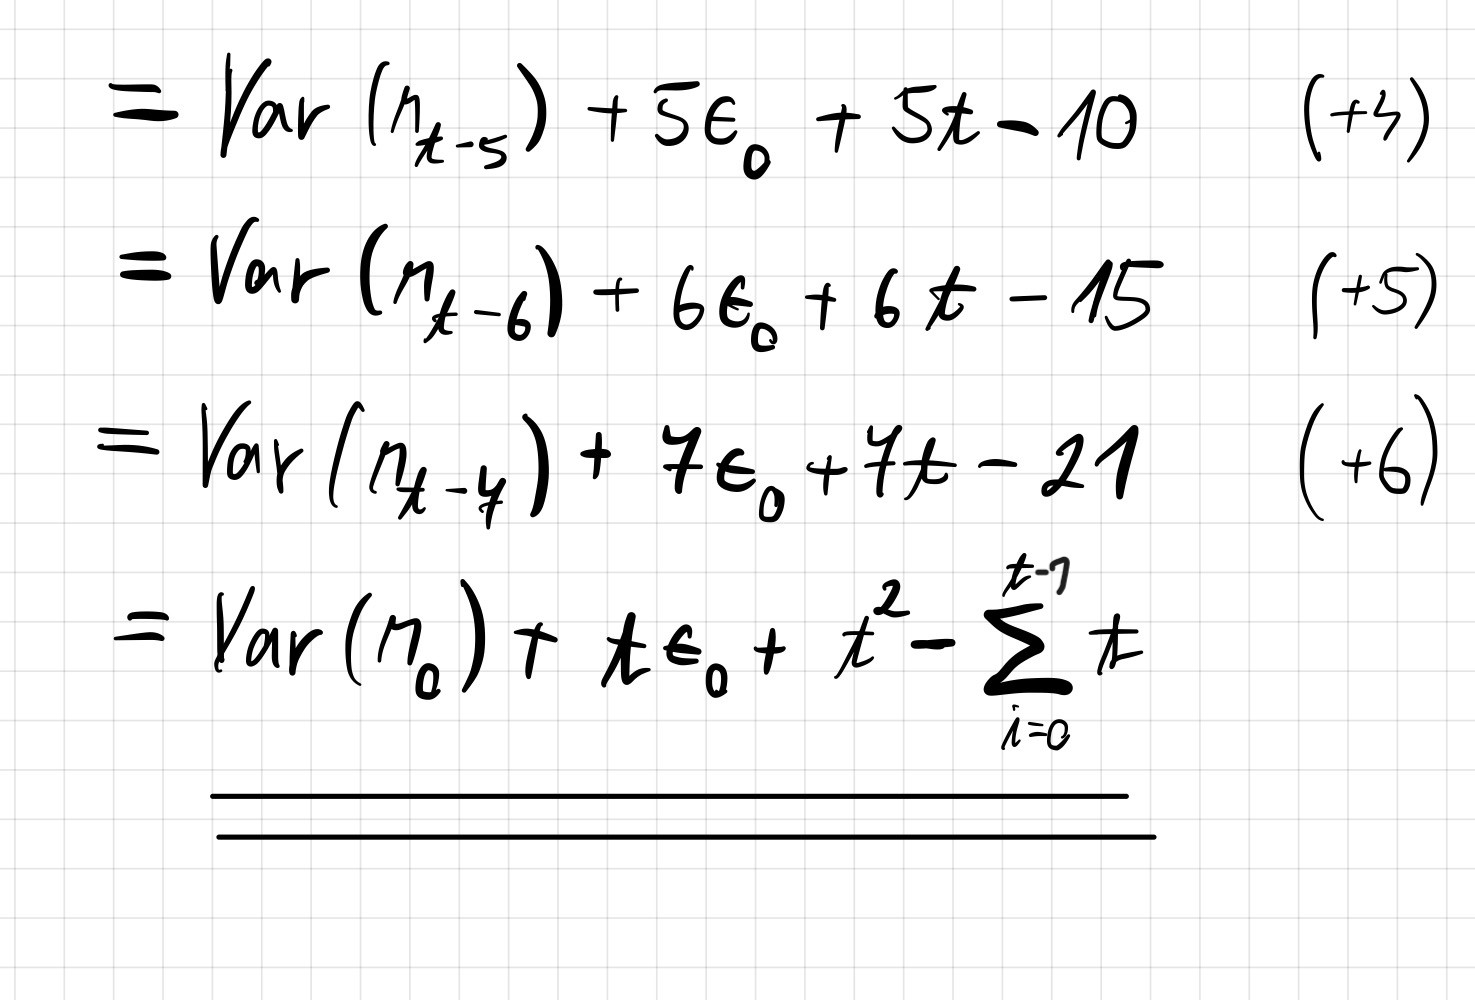 = Var (n_{t-5}) + 5ϵ_0 + 5t - 10 (+4)
= Var (n_{t-6}) + 6ϵ_0 + 6t - 15 (+5)
= Var (n_{t-7}) + 7ϵ_0 + 7t - 21 (+6)
= Var (n_0) + tϵ_0 + t^2 - \sum_{i=0}^{t-1} t